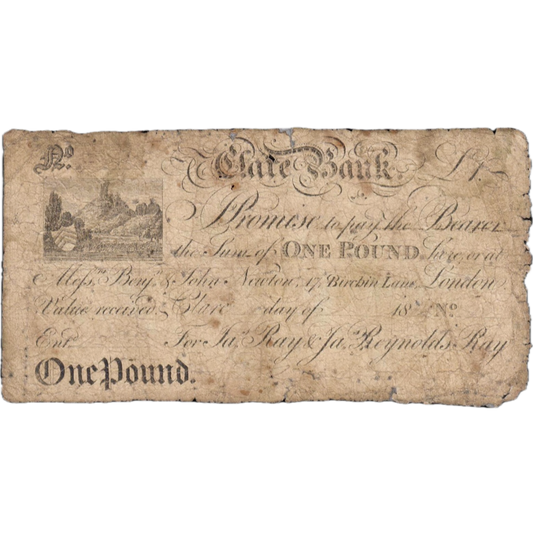 No. Clare Bank £1
I Promise to pay the Bearer
the Sum of ONE POUND here, or at
Messrs. Benjn. & John Newton, 17, Birchin Lane, London
Value received, Clare day of 18 No
Entd. For Jas. Ray & Jas. Reynolds Ray
One Pound.